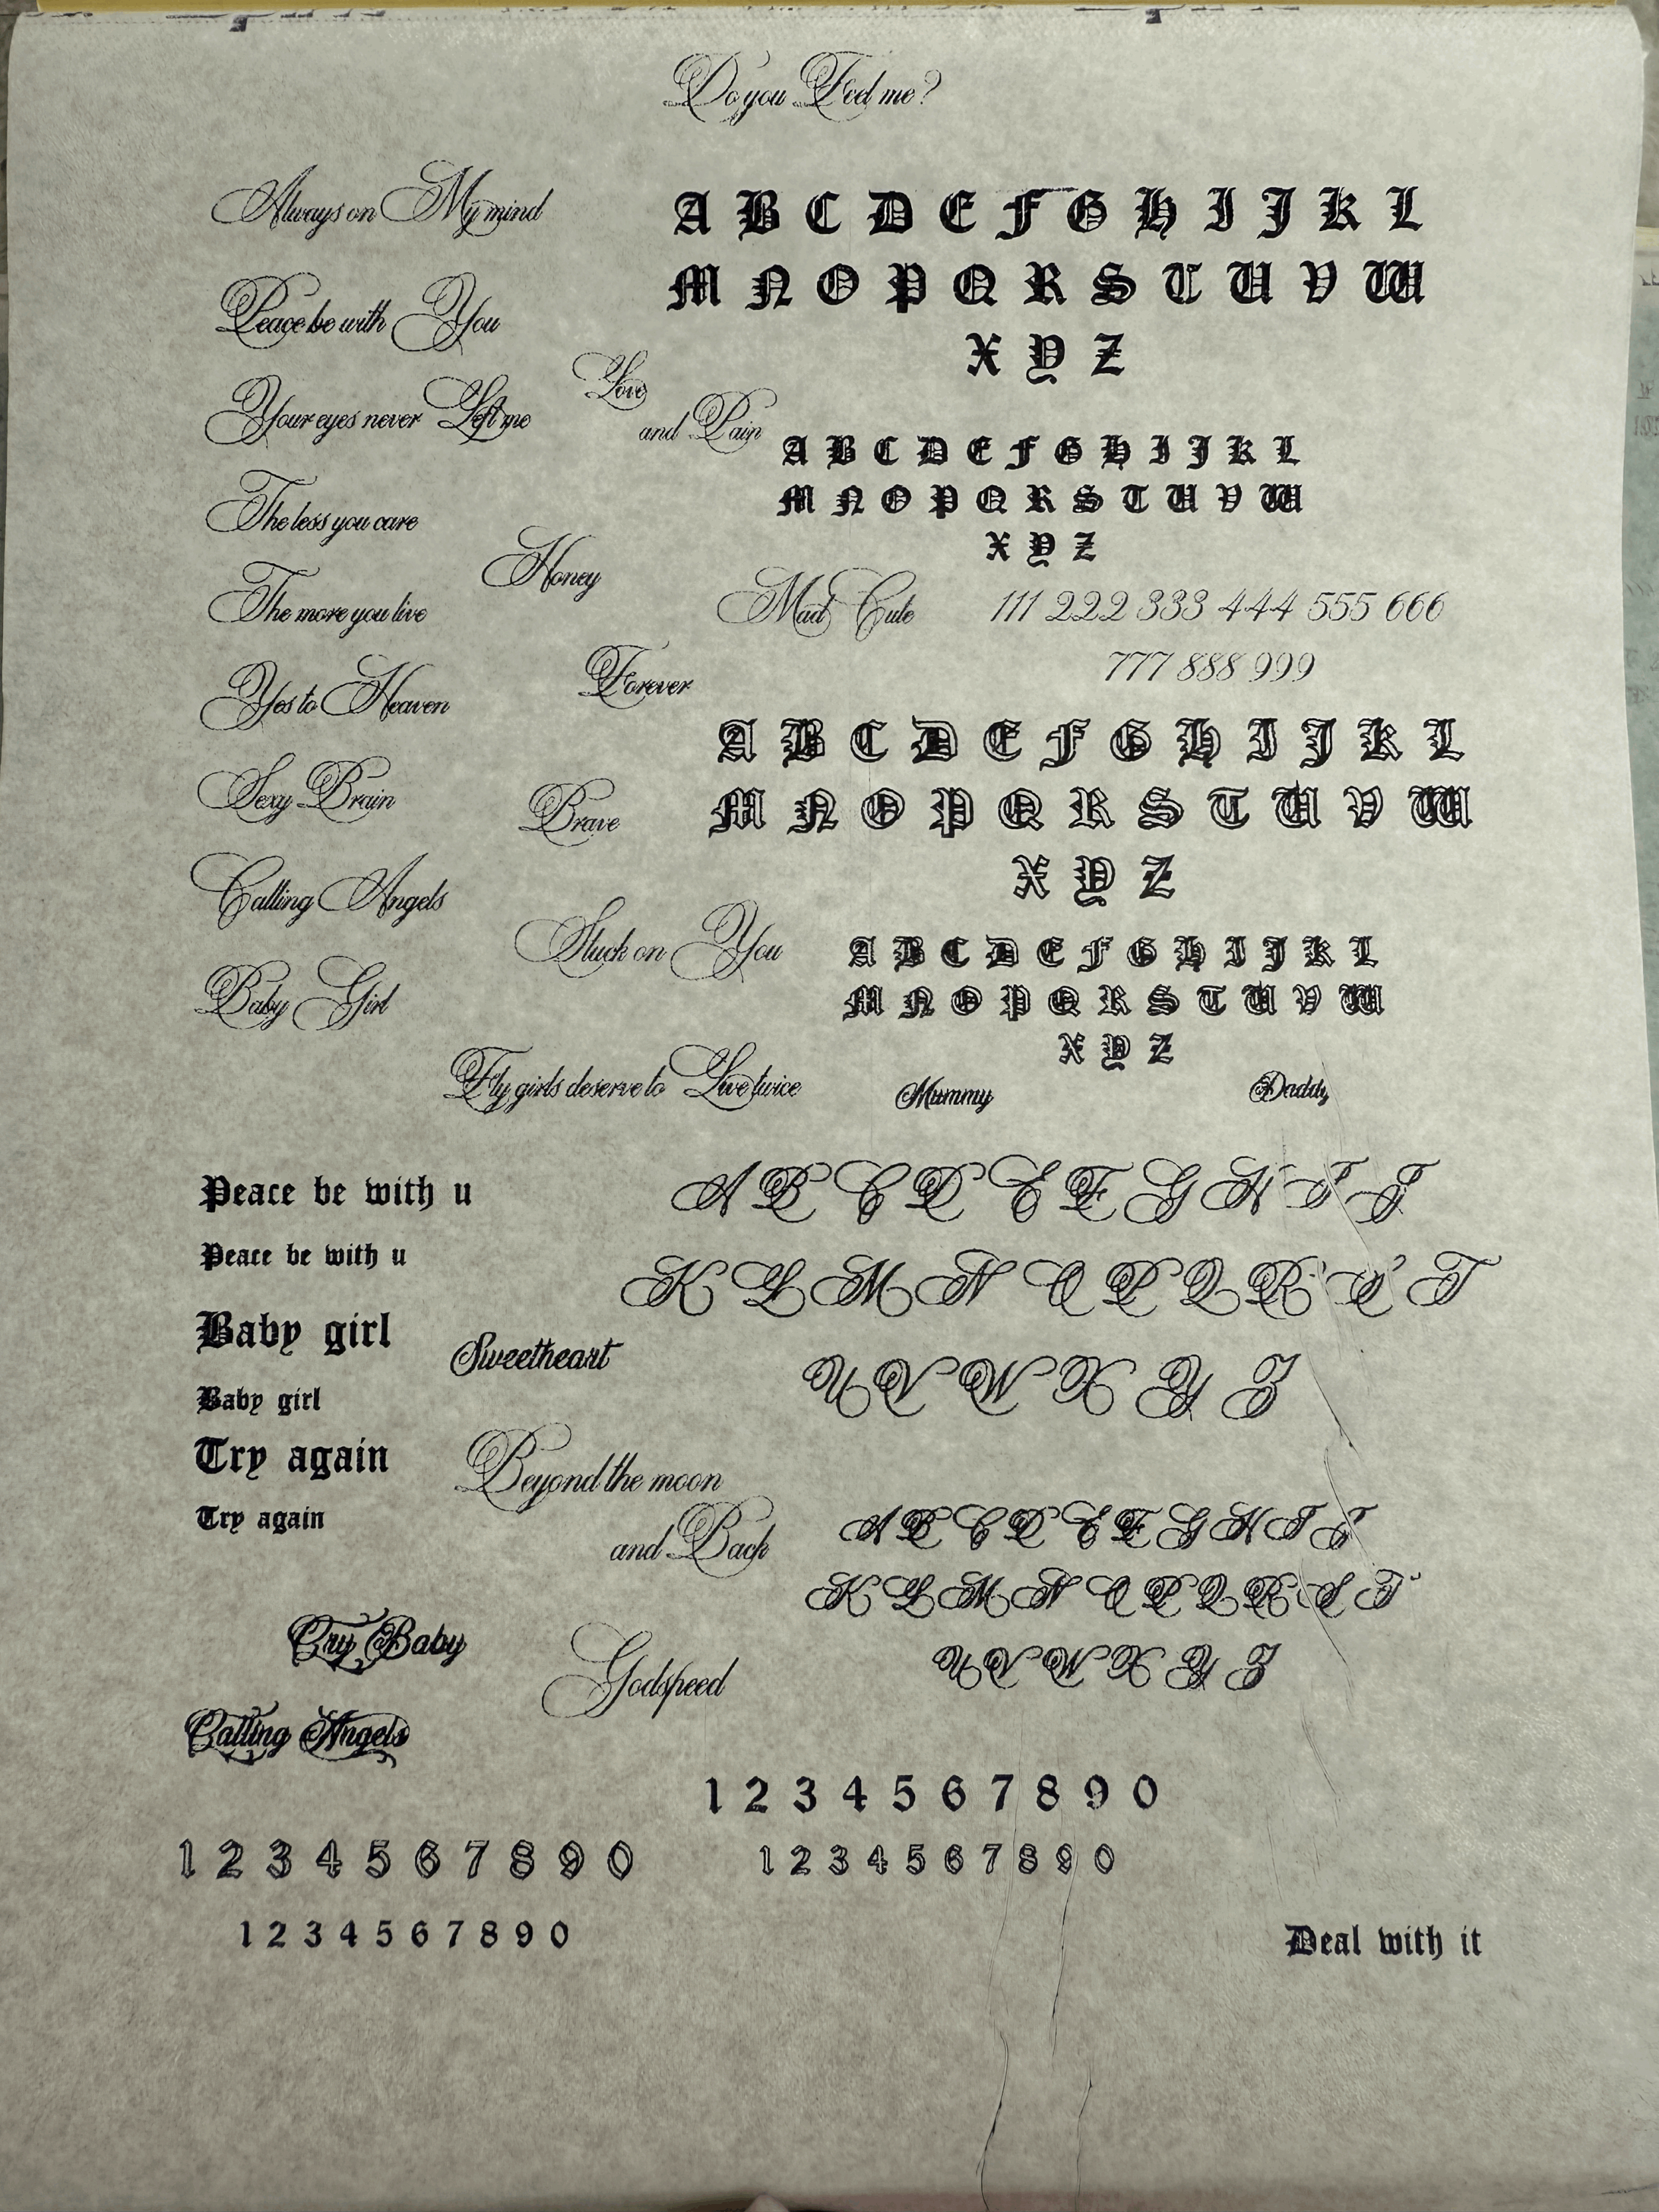 Do you Feel me?
Always on My mind
A B C D E F G H I J K L
M N O P Q R S T U V W
X Y Z
Peace be with You
Love
and Pain
Your eyes never Left me
A B C D E F G H I J K L
M N O P Q R S T U V W
X Y Z
The less you care
Honey
The more you live
Mad Cute
111 222 333 444 555 666
777 888 999
Forever
Yes to Heaven
A B C D E F G H I J K L
M N O P Q R S T U V W
X Y Z
Sexy Brain
Brave
Calling Angels
Stuck on You
A B C D E F G H I J K L
M N O P Q R S T U V W
X Y Z
Baby Girl
Fly girls deserve to Live twice
Mummy
Daddy
Peace be with u
Peace be with u
A B C D E F G H I J
K L M N O P Q R S T
U V W X Y Z
Baby girl
Sweetheart
Baby girl
Try again
Try again
Beyond the moon
and Back
A B C D E F G H I J
K L M N O P Q R S T
U V W X Y Z
Cry Baby
Godspeed
Calling Angels
1 2 3 4 5 6 7 8 9 0
1 2 3 4 5 6 7 8 9 0
1 2 3 4 5 6 7 8 9 0
1 2 3 4 5 6 7 8 9 0
Deal with it